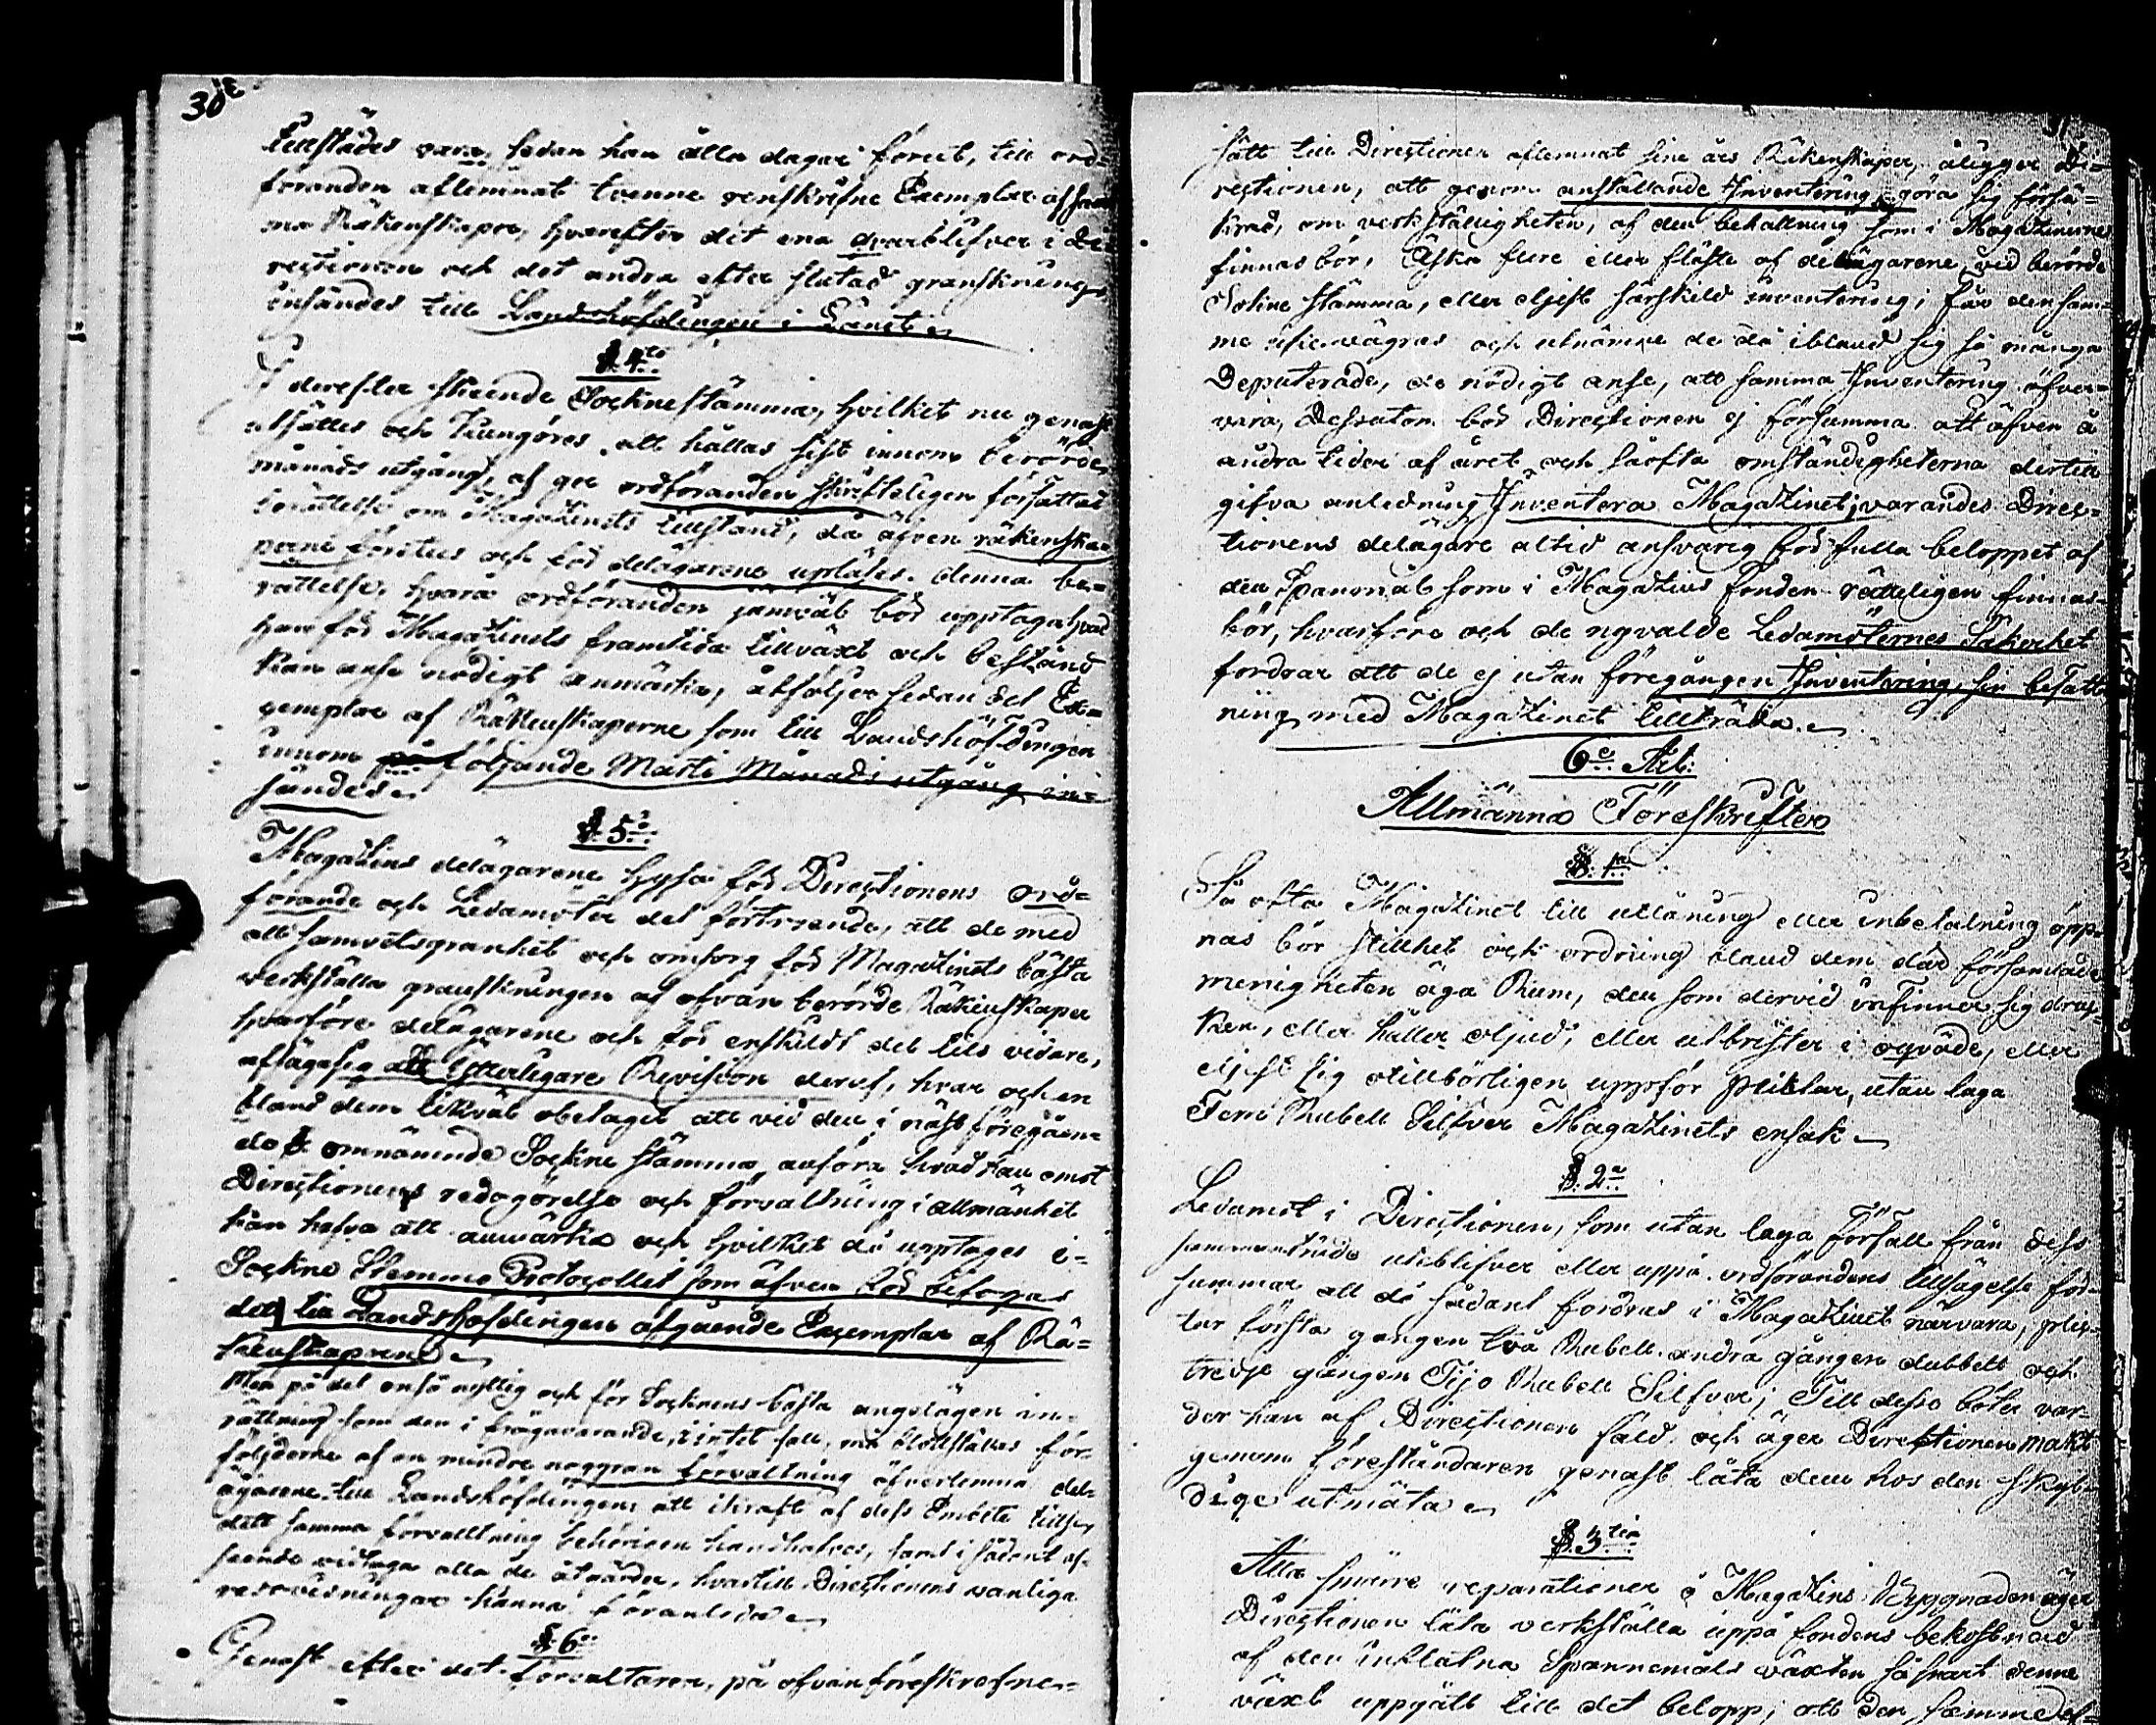 30
tillstädes vara, sedan han åtta dagar förut, till ord-
föranden aflemnat tvenne renskrifne Exemplar af sam-
ma Räkenskaper, hvarefter det ena qvarblifver i Di-
rectionen och det andra efter slutad granskning
insändes till Landshöfdingen i Länet.
§. 4to
I derefter skeende Sockne stämma, hvilket nu genast
utsättes och Kungöres att hållas sist innom berörde
månads utgång, af ger ordföranden skrifteligen författad
berättelse om Magazinets tillstånd, då äfven räkenska-
perne företes och för delägarene upläses. denna be-
rättelse, hvara ordföranden jemväl bör upptaga hvad
han för Magazinets framtida tillväxt och bestånd
kan anse nödigt anmärka, åtföljer sedan det Ex-
emplar af Räkenskaperne som till Landshöfdingen
innom på följande Marti Månads utgång in-
sändes.
§. 5o
Magazins delägarene hysa för Directionens ord-
förande och Ledamöter det förtroende, att de med
all samvetsgranhet och omsorg för Magazinets bästa
verkställa granskningen af ofvan berörde Räkenskaper
hvarföre delägarene och för enskildt del tils vidare,
aflägsig all ytterligare Revision deraf, hvar och en
bland dem likväl obetaget att vid den i näst föregåen-
de §. omnämnde Sockne stämma, anföra hvad han emot
Directionens redogörelse och förvaltning i allmänhet
kan hafva att anmärka och hvilket då upptages i
Sockne Stemmo Protocollet som äfven bör bifogas
det till Landshöfdingen afgående Exemplar af Rä-
kenskaperne.
Men på det en så nyttig och för Socknens bästa angelägen in-
rättning som den i frågavarande, i intet fall, må blottställas för
följderne af en mindre noggran förvaltning öfverlemna del-
ägarene till Landshöfdingen att i kraft af dess Embete tillse,
det samma förvaltning behörigen handhafves, samt i sådant af-
seende vidtaga alla de åtgärder, hvartill Directionens vanliga
redovisningar kunna föranleda.
§. 6te
Genast efter det förvaltaren, på ofvan föreskrefne
31
sätt till Directionen aflemnat sine års Räkenskaper, åligger Di-
rectionen, att genom anställande Inventering göra sig försä-
krad, om verkställigheten, af den behållning som i Magazinerne
finnas bör, Äska flere eller fläste af delägarene vid berörde
Sokne stämma, eller eljest särskild inventering; får densam-
me icke vägras och utnämne de då ibland sig så många
Deputerade, de nödigt anse, att samma Inventering öfver-
vara, Dessutom bör Directionen ej försumma att äfven å
andra tider af året och såofta omständigheterna dertill
gifva anledning Inventera Magazinet; varandes Direc-
tionens delägare altid ansvarig för fulla beloppet af
den Spanmål som i Magazins fonden rätteligen finnas
bör, hvarföre och de nyvalde Ledamöternes Säkerhet
fordrar att de ej utan föregången Inventering, sin befatt-
ning med Magazinet tillträda.
6e Art:
Allmänna Föreskrifter
§. 1a
Så ofta Magazinet till utlåning eller inbetalning öpp-
nas bör stillhet och ordning bland dem där församlade
menigheten äga Rum, den som dervid infinner sig druc-
ken, eller håller oljud, eller utbrister i oqväde, eller
eljest sig otillbörligen uppför plicktar, utan laga
Fem Rubell Silfver Magazinets ensak.
§. 2a
Ledamot i Directionen, som utan laga Förfall från dess
sammanträde uteblifver eller uppå ordförandens tillsägelse för-
summar att då sådant fordras i Magazinet närvara, plic-
tar första gången två Rubell andra gången dubbelt och
tredje gången Tijo Rubell Silfver; Till desse böter var-
der han af Directionen fäld och äger Directionen makt
genom föreståndaren genast låta dem hos den skyl-
dige utmäta.
§. 3tie
Alla smärre reparationer å Magazins Byggnaden äger
Directionen låta verkställa uppå fondens bekostnad
af den inflatna Spannemåls växten så snart denne
växt uppgått till det belopp, att den samme af-